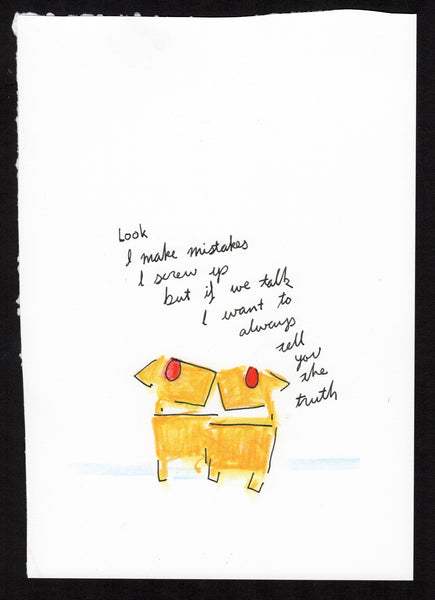 Look
I make mistakes
I screw up
but if we talk
I want to
always
tell
you
the
truth